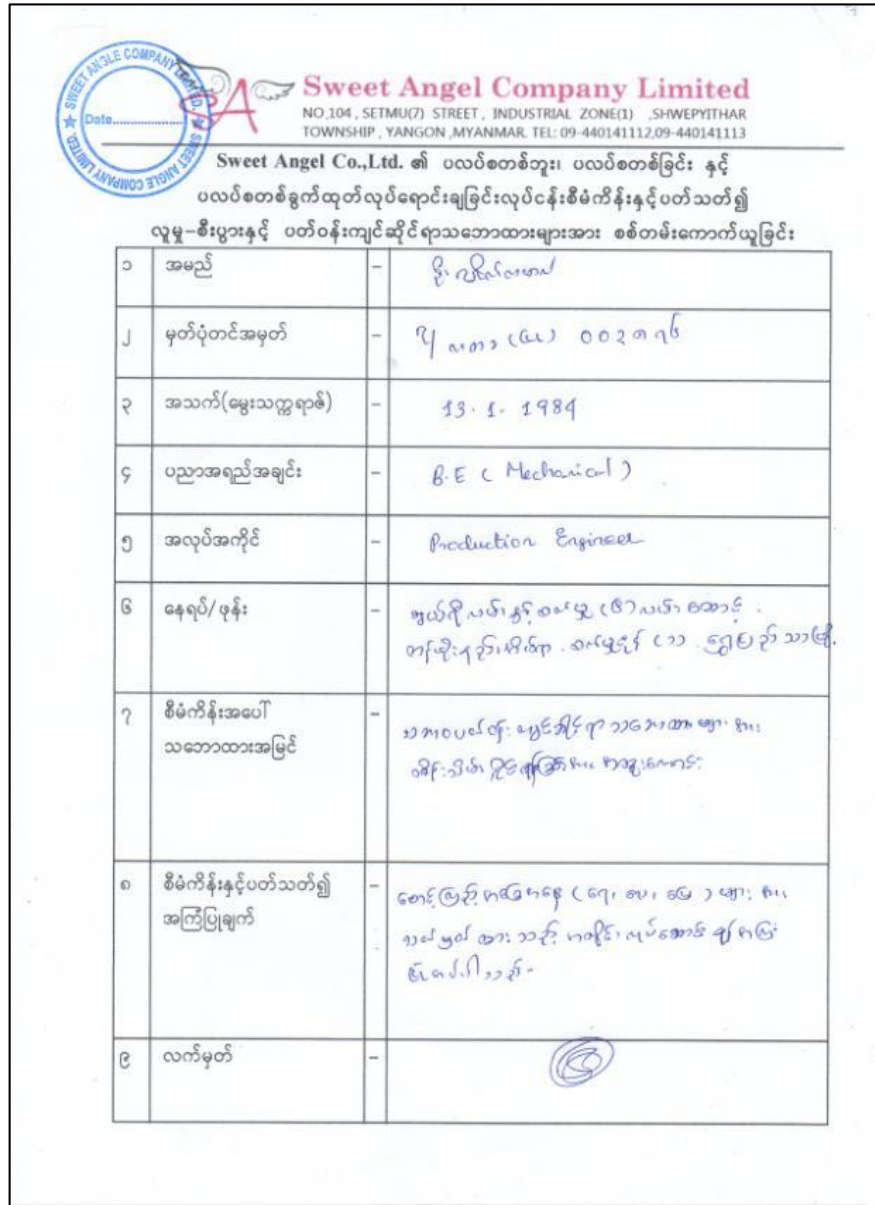 SWEET ANGLE COMPANY LIMITED. ★ SWEET ANGLE COMPANY LIMITED. ★
Date....................
SA
Sweet Angel Company Limited
NO,104 , SETMU(7) STREET , INDUSTRIAL ZONE(1) ,SHWEPYITHAR
TOWNSHIP , YANGON ,MYANMAR. TEL: 09-440141112,09-440141113
Sweet Angel Co.,Ltd. ၏ ပလပ်စတစ်ဘူး၊ ပလပ်စတစ်ခြင်း နှင့်
ပလပ်စတစ်ခွက်ထုတ်လုပ်ရောင်းချခြင်းလုပ်ငန်းစီမံကိန်းနှင့်ပတ်သတ်၍
လူမှု-စီးပွားနှင့် ပတ်ဝန်းကျင်ဆိုင်ရာသဘောထားများအား စစ်တမ်းကောက်ယူခြင်း
၁ အမည် - ဦး
၂ မှတ်ပုံတင်အမှတ် - ၀၀၃၈၇၆
၃ အသက်(မွေးသက္ကရာဇ်) - 13. 1. 1984
၄ ပညာအရည်အချင်း - B.E ( Mechanical )
၅ အလုပ်အကိုင် - Production Engineer
၆ နေရပ်/ဖုန်း -
ရွှေပြည်သာမြို့.
၇ စီမံကိန်းအပေါ် - သဘာဝပတ်ဝန်းကျင်ဆိုင်ရာ သဘောထားများအား
သဘောထားအမြင်
၈ စီမံကိန်းနှင့်ပတ်သတ်၍ - စောင့်ကြည့် အခြေအနေ (ရေ၊ လေ၊ မြေ ) များအား
အကြံပြုချက် သတ်မှတ်ထားသည့် အတိုင်း လုပ်ဆောင်ရန် အကြံ
ပြုအပ်ပါသည်-
၉ လက်မှတ် -